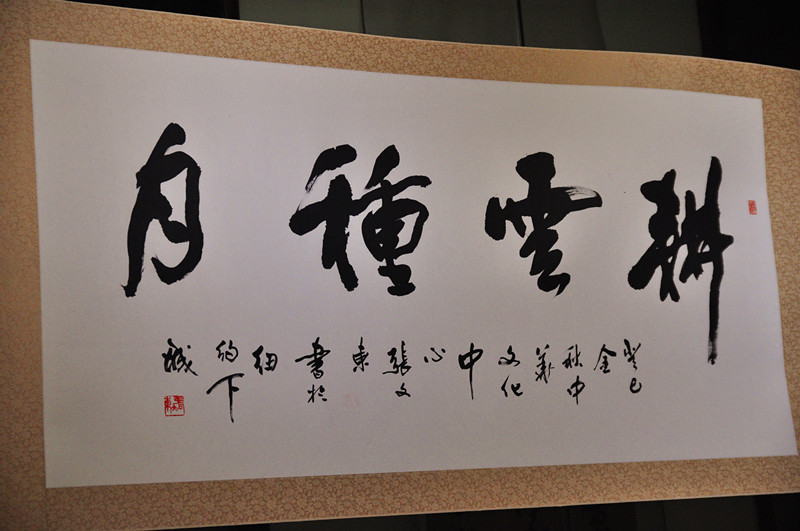 耕雲種月
癸巳金秋中華文化中心張文東書於紐約下城